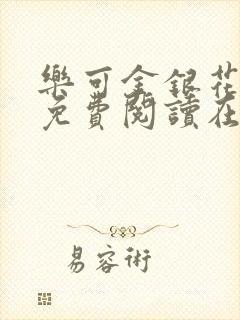 樂可金銀花
免費閱讀在
易容術